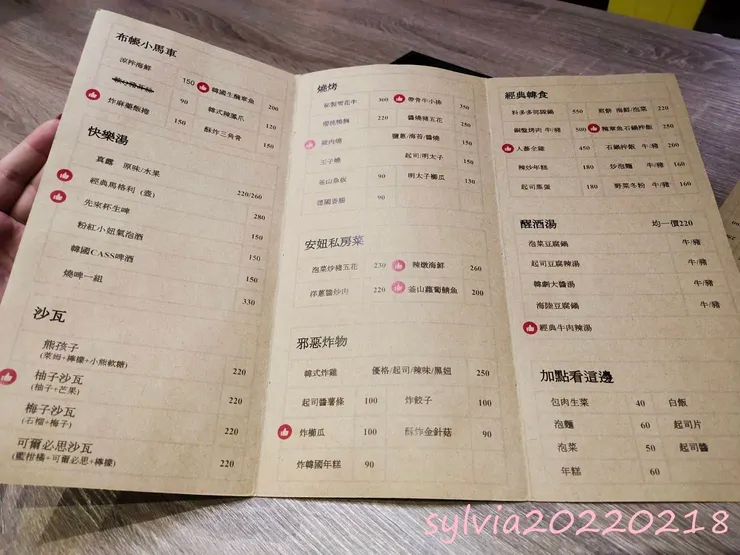 布帳小馬車
涼拌海鮮 150 韓國生醃章魚 200
90 韓式辣鳳爪 120
炸麻藥飯捲 90 酥炸三角骨 150
快樂湯
真露 原味/水果 220/260
經典馬格利(壺) 280
先來杯生啤 150
粉紅小妞氣泡酒 150
韓國CASS啤酒 150
燒啤一組 330
沙瓦
熊孩子 220
(萊姆+檸檬+小熊軟糖)
柚子沙瓦 220
(柚子+芒果)
梅子沙瓦 220
(石榴+梅子)
可爾必思沙瓦 220
(藍柑橘+可爾必思+檸檬)
燒烤
私製雪花牛 300 帶骨牛小排 350
220 醬燒豬五花 250
鹽蔥/海苔/醬燒 150
玉子燒 起司/明太子 150
釜山魚板 90 明太子櫛瓜 130
德國香腸 90
安妞私房菜
泡菜炒豬五花 230 辣燉海鮮 260
洋蔥醬炒肉 220 釜山蘿蔔鯖魚 200
邪惡炸物
韓式炸雞 優格/起司/辣味/黑妞 250
起司醬薯條 100 炸餃子 100
炸櫛瓜 100 酥炸金針菇 90
炸韓國年糕 90
經典韓食
料多多部隊鍋 550 煎餅 海鮮/泡菜 220
銅盤烤肉 牛/豬 500 辣章魚石鍋拌飯 280
人蔘全雞 450 石鍋拌飯 牛/豬 200
辣炒年糕 180 炒泡麵 牛/豬 160
起司蒸蛋 180 野菜冬粉 牛/豬 160
醒酒湯 均一價220
泡菜豆腐鍋 牛/豬
起司豆腐辣湯 牛/豬
韓劇大醬湯 牛/豬
海陸豆腐鍋 牛/豬
經典牛肉辣湯
加點看這邊
包肉生菜 40 白飯
泡麵 60 起司片
泡菜 50 起司醬
年糕 60
sylvia20220218